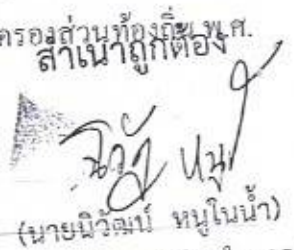 ครองส่วนท้องถิ่น พ.ศ.
สำเนาถูกต้อง
(นายนิวัฒน์ หนูในน้ำ)